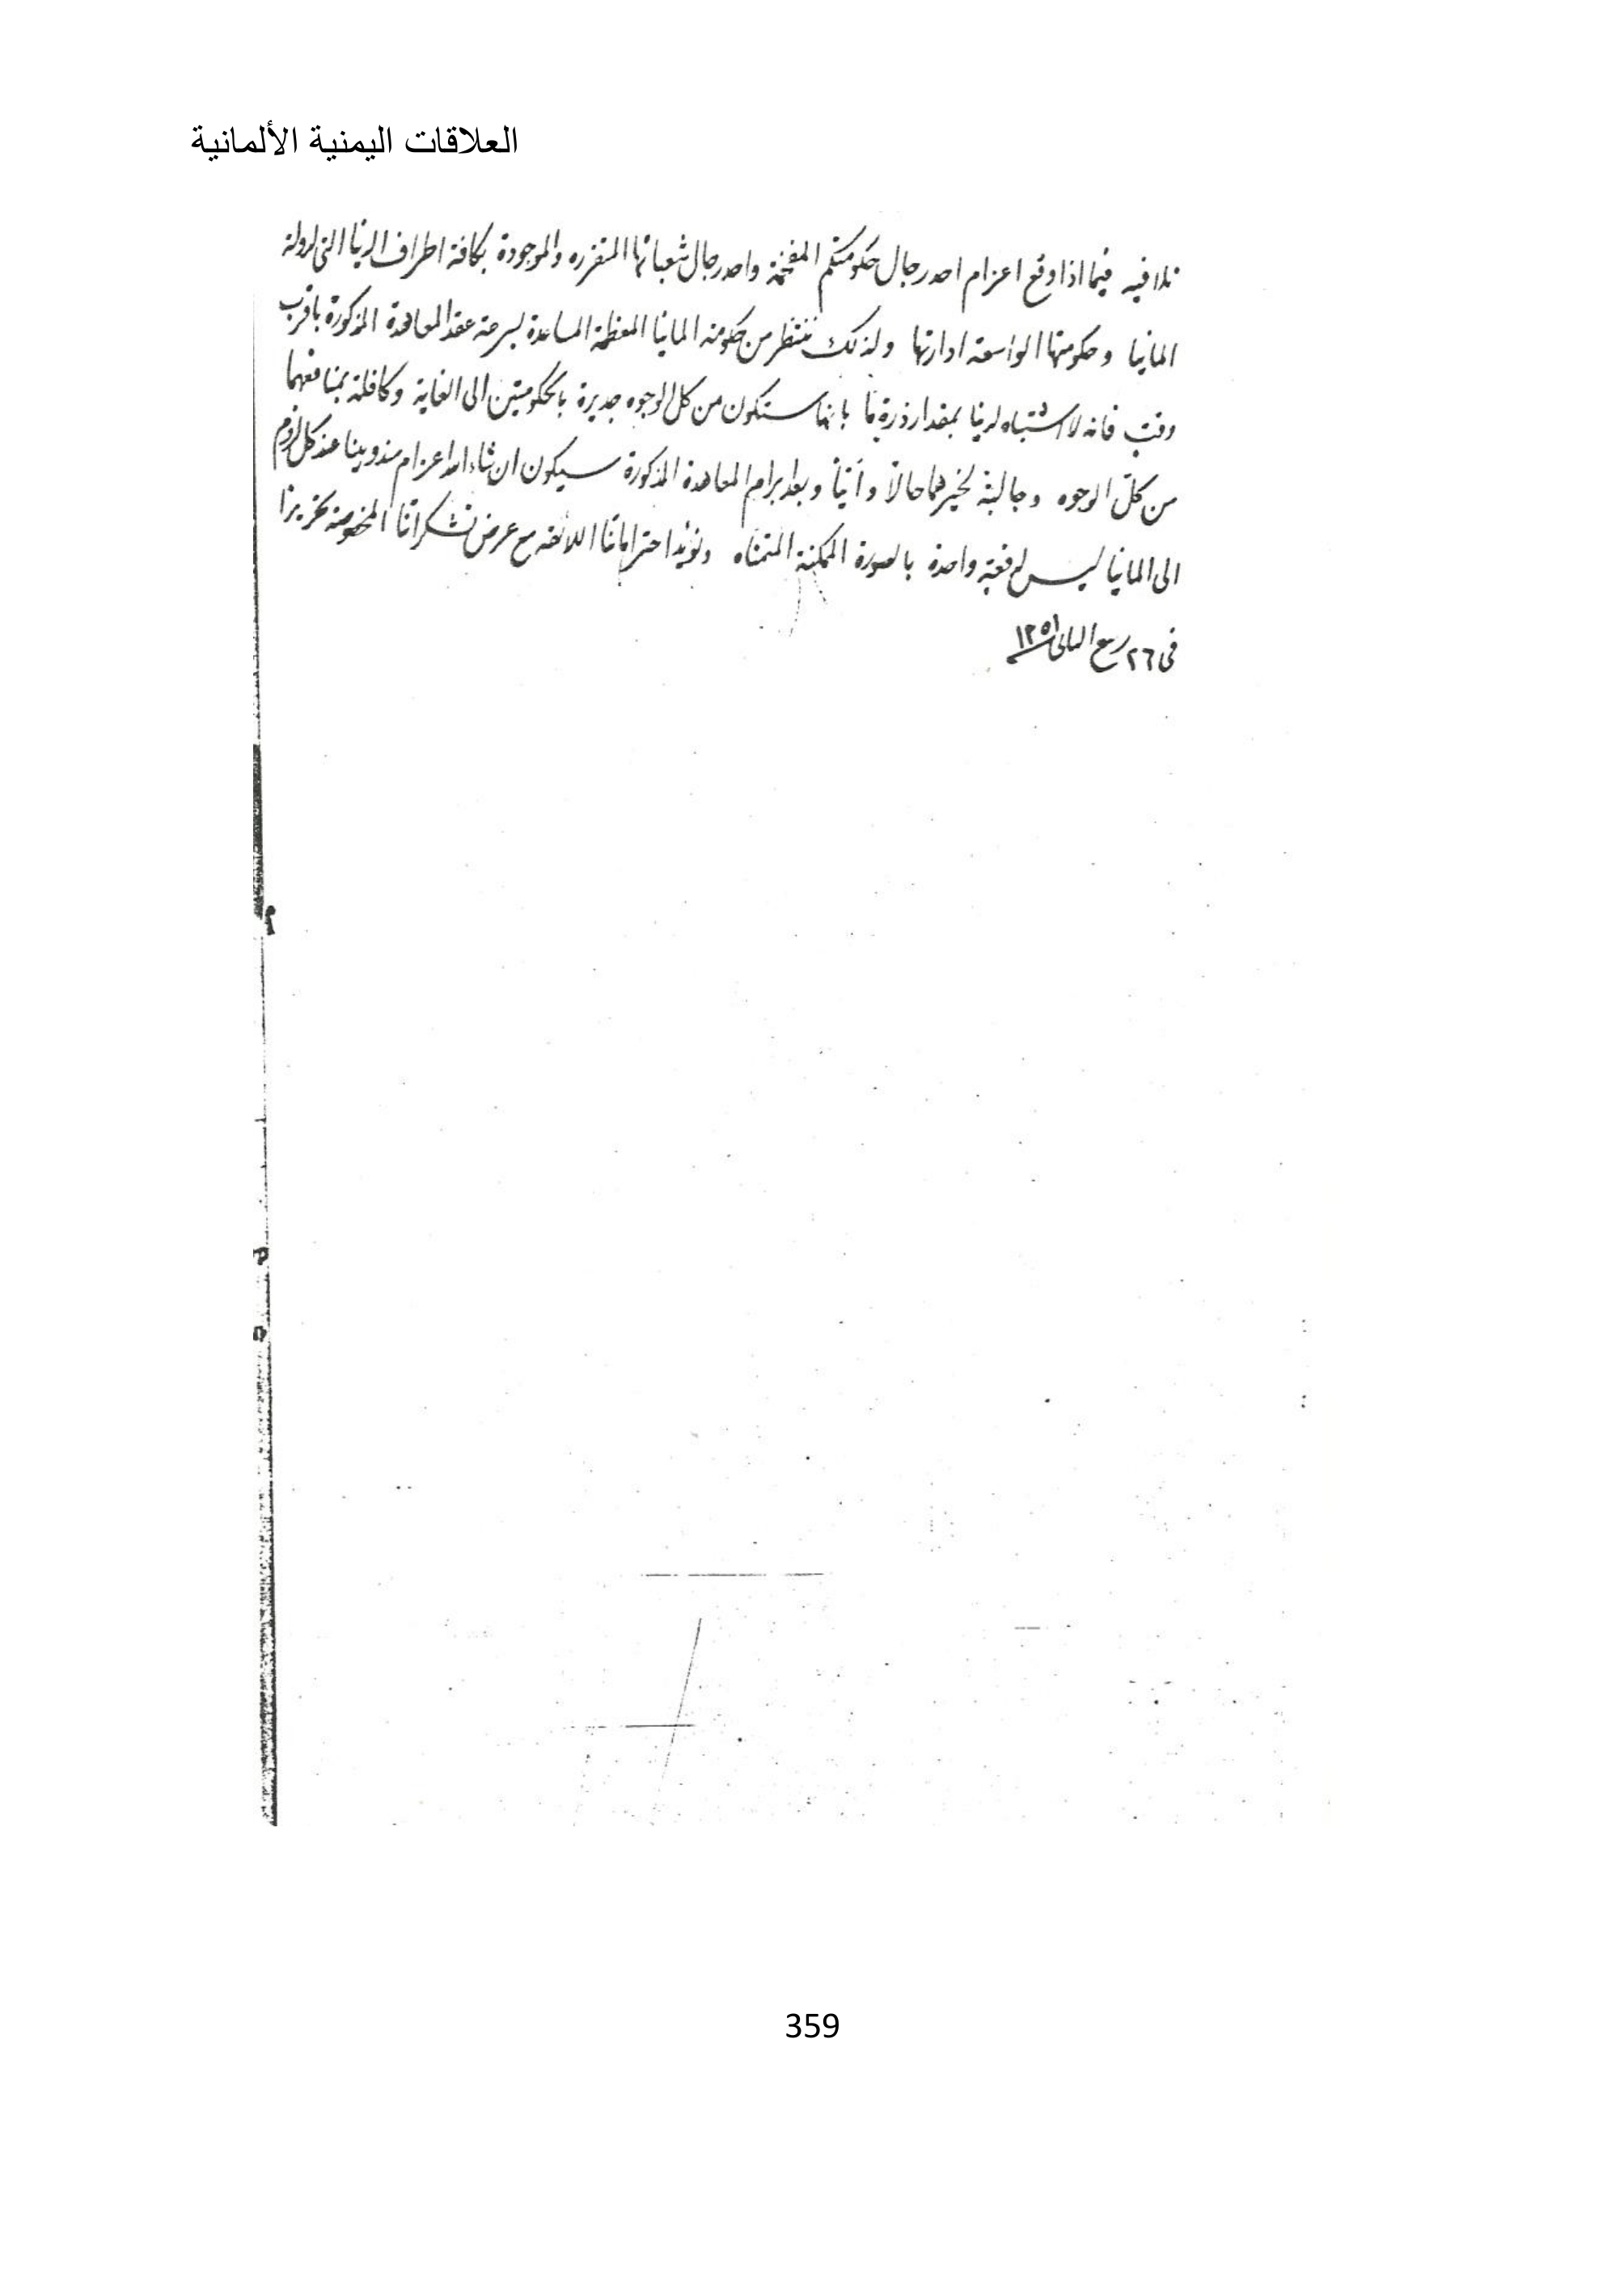 العلاقات اليمنية الألمانية
تلافيه فيما اذا وقع اعزام احد رجال حكومتكم المفخمة واحد رجال شعباتها المتفرره والموجودة بكافة اطراف الدنيا التى لدولة
المانيا وحكومتها الواسعة ادارتها ولذلك ننتظر من حكومة المانيا المعظمة المساعدة بسرعة عقد المعاهدة المذكورة باقرب
وقت فانه لا اشتباه لدينا بمقدار ذرة ما بانها ستكون من كل الوجوه جديرة بالحكومتين الى الغاية وكافلة بمنافعهما
من كل الوجوه وجالبة لخيرهما حالاً وآتياً وبعد ابرام المعاهدة المذكورة سيكون ان شاء الله اعزام مندوبينا عند كل لزوم
الى المانيا ليس لدفعة واحدة بالصورة الممكنة المتمناه ونؤيد احتراماتنا اللائقه مع عرض تشكراتنا المخصوصة تحريراً
فى ٢٦ ربيع الثانى ١٣٥١
359